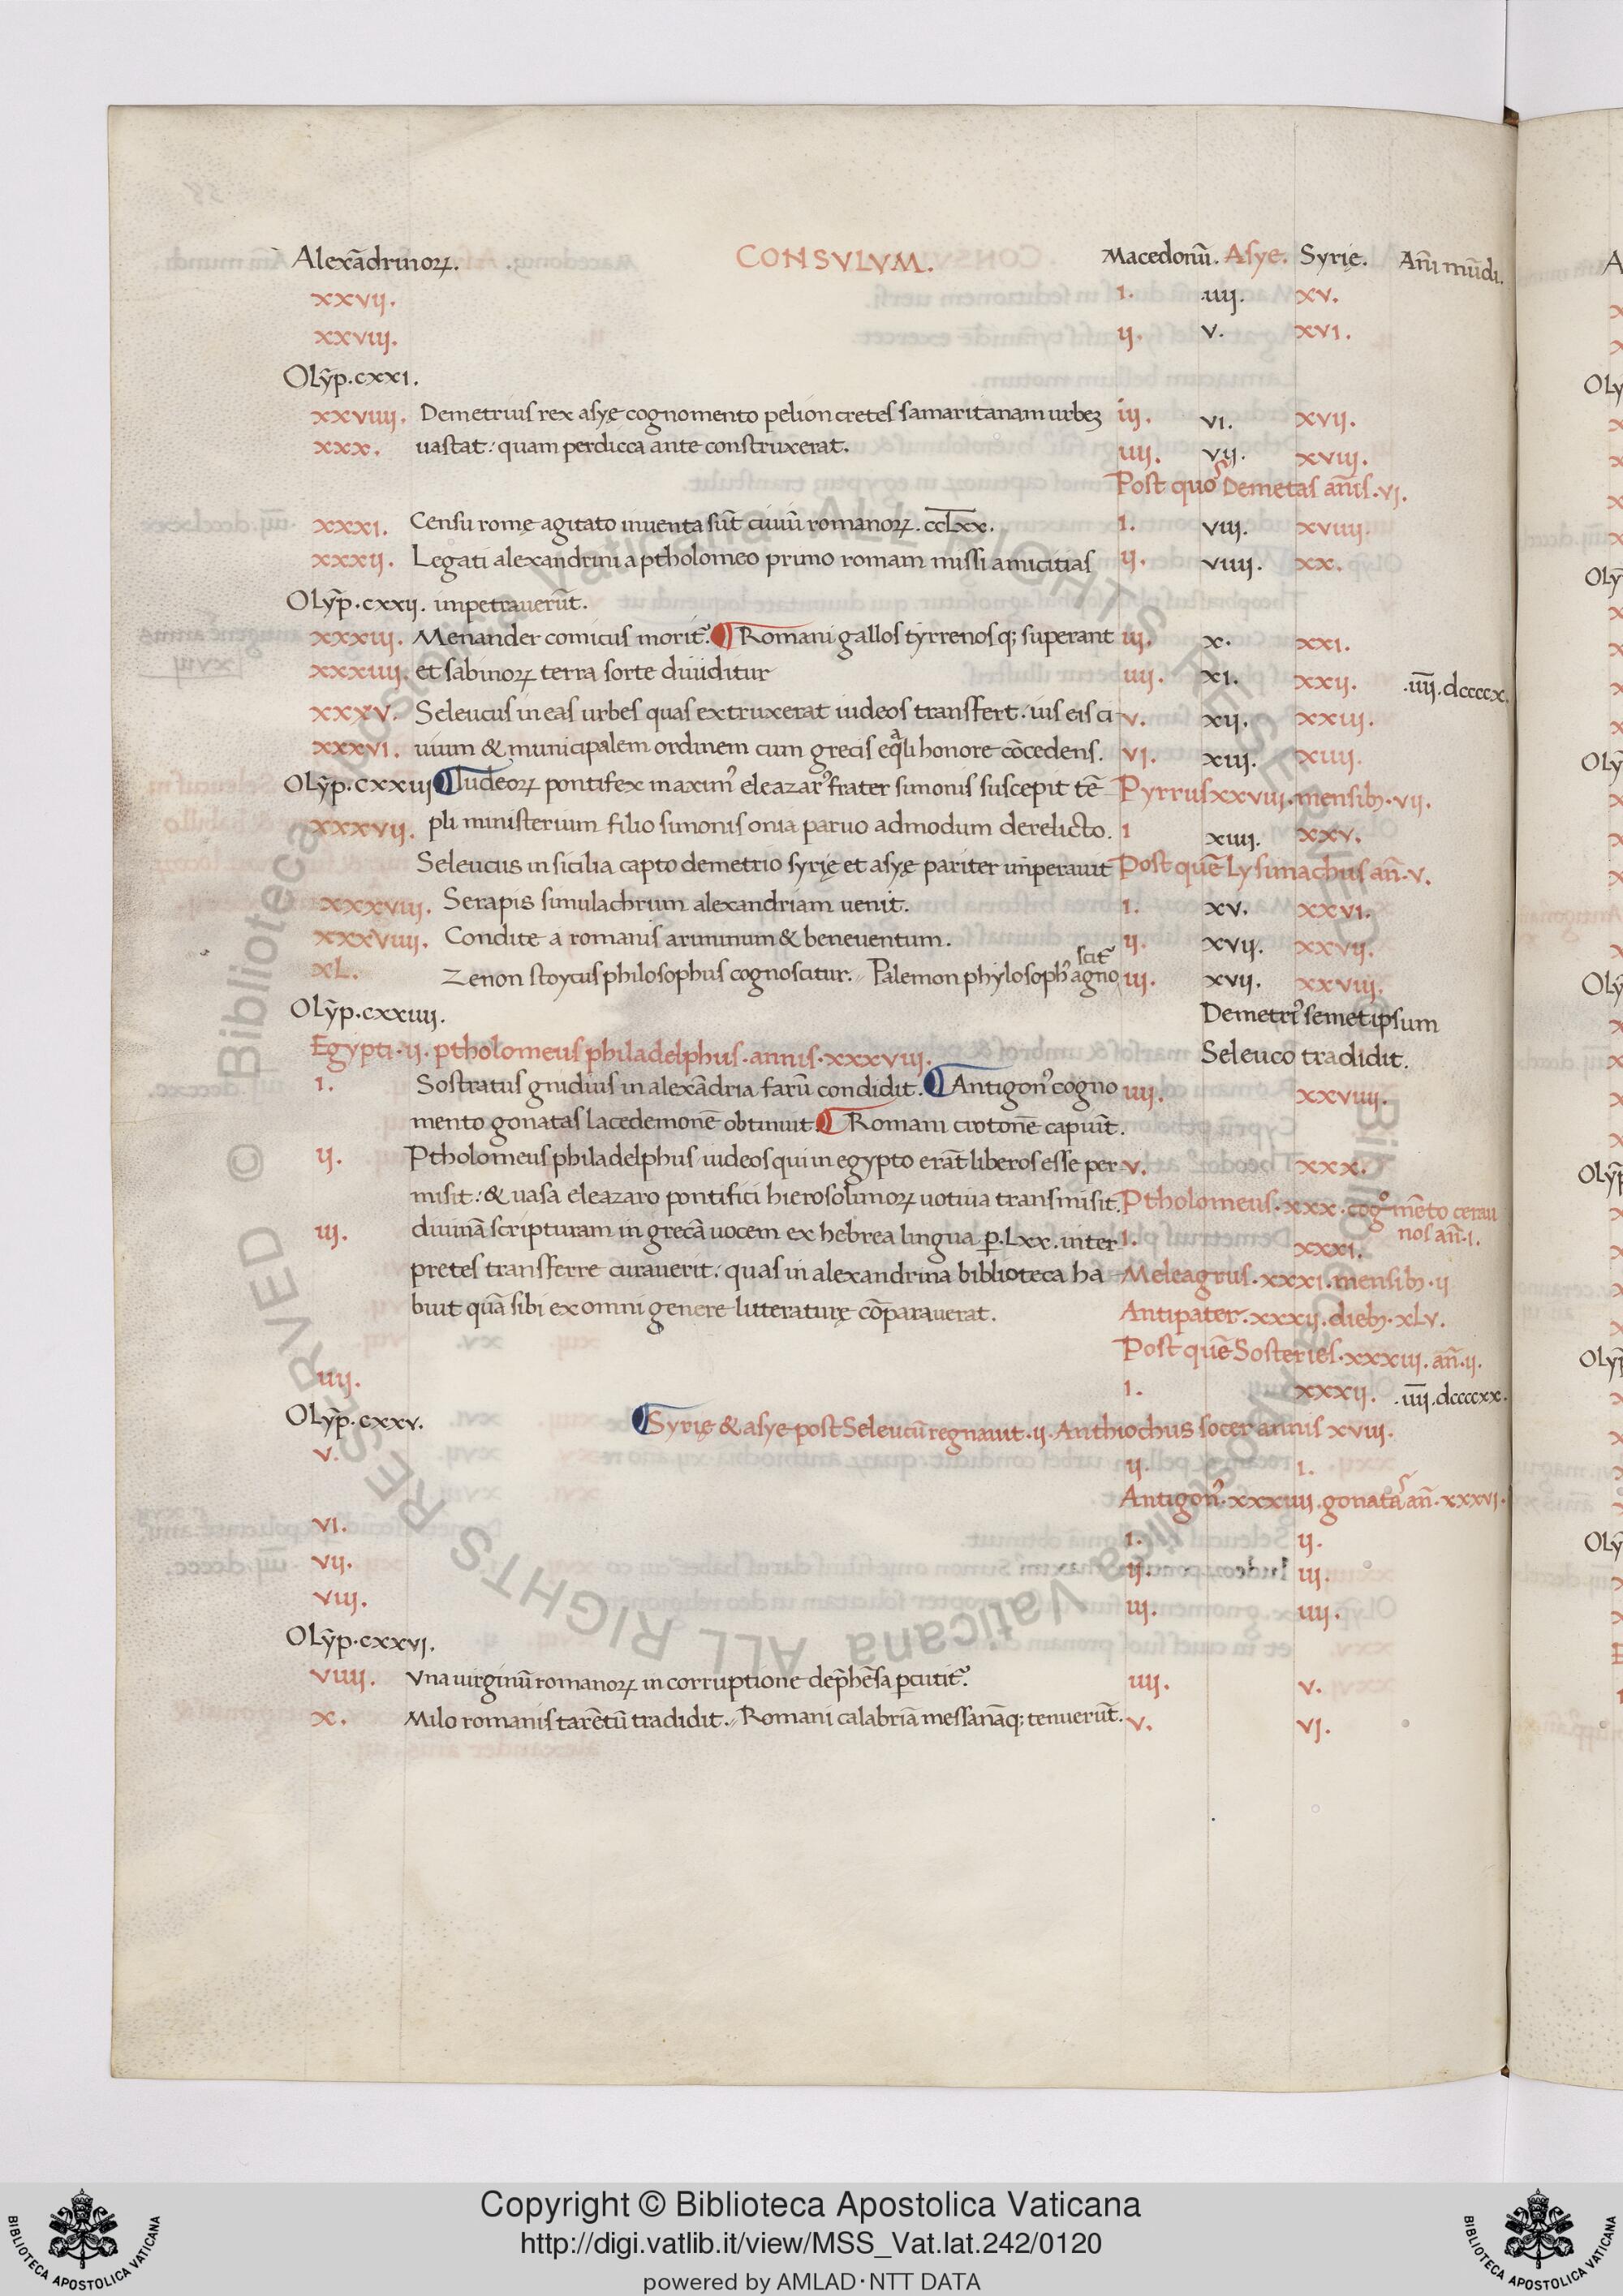 Alexãdrinoꝝ. CONSVLVM. Macedonũ. Asye. Syrię. Añi mũdi.
xxvij. 1. ·iiij. xv.
xxviij. ij. v. xvi.
Olỹp.cxxi.
xxviiij. Demetrius rex asyę cognomento pelion cretes samaritanam urbeꝫ iij. vi. xvij.
xxx. uastat: quam perdicca ante construxerat. iiij. vij. xviij.
Post quos Demetas añis.vj.
xxxi. Censu romę agitato inventa sũt ciuiũ romanoꝝ. ccLxx. 1. viij. xviiij.
xxxij. Legati alexandrini a ptholomeo primo romam missi amicitias ij. viiij. xx.
Olỹp.cxxij. impetrauerũt.
xxxiij. Menander comicus morit᷑. ¶ Romani gallos tyrrenosq; superant iij. x. xxi.
xxxiiij. et sabinoꝝ terra sorte diuiditur iiij. xi. xxij. .iiij.dccccx.
xxxv. Seleucus in eas urbes quas extruxerat iudeos transfert: iuis eis ci v. xij. xxiij.
xxxvi. uium & municipalem ordinem cum grecis eqali honore cõcedens. vi. xiij. xxiiij.
Olỹp.cxxiij ¶ Iudeoꝝ pontifex maxim᾿ eleazar᾿ frater simonis suscepit tẽ Pyrrus xxviij.mensibꝫ.vij.
xxxvij. pli ministerium filio simonis onia paruo admodum derelicto. 1 xiiij. xxv.
Seleucus in sicilia capto demetrio syrię et asyę pariter imperauit Post quẽ Lysimachus añ.v.
xxxviij. Serapis simulachrum alexandriam uenit. 1. xv. xxvi.
xxxviiij. Condite a romanis ariminum & beneuentum. ij. xvij. xxvij.
scit᷑
xL. Zenon stoycus philosophus cognoscitur. Palemon phylosoph᾿ agno iij. xvij. xxviij.
Olỹp.cxxiiij. Demetri᾿ semetipsum
Egypti.ij.ptholomeus philadelphus.annis.xxxviij. Seleuco tradidit.
1. Sostratus gnidius in alexãdria farũ condidit. ¶ Antigon᾿ cogno iiij. xxviiij.
mento gonatas lacedemonẽ obtinuit ¶ Romani crotonẽ capiũt.
ij. Ptholomeus philadelphus iudeos qui in egypto erãt liberos esse per v. xxx.
misit: & uasa eleazaro pontifici hierosolimoꝝ uotiua transmisit. Ptholomeus.xxx.cogº mẽto cerau
iij. diuinã scripturam in grecã uocem ex hebrea lingua ꝑ.Lxx.inter 1. xxxi. nos añ.i.
pretes transferre curauerit: quas in alexandrina biblioteca ha Meleagrus.xxxi.mensibꝫ.ij
buit quã sibi ex omni genere litteraturę cõparauerat. Antipater.xxxij.diebꝫ.xLv.
Post quẽ Sosteries.xxxiij.añ.ij.
iiij. 1. xxxij. .iiij.dccccxx.
Olỹp.cxxv. ¶ Syrię & asye post Seleucũ regnauit.ij.Anthiochus socer annis xviij.
v. ij. 1.
Antigon᾿.xxxiiij.gonatas añ.xxxvj.
vi. 1. ij.
vij. ij. iij.
viij. iij. iiij.
Olỹp.cxxvj.
viiij. Vna uirginũ romanoꝝ in corruptione dep̃hẽsa ꝑcutit᷑. iiij. v.
x. Milo romanis tarẽtũ tradidit. Romani calabriã messanãq; tenuerũt. v. vj.
Copyright © Biblioteca Apostolica Vaticana
http://digi.vatlib.it/view/MSS_Vat.lat.242/0120
powered by AMLAD·NTT DATA
BIBLIOTECA APOSTOLICA VATICANA
BIBLIOTECA APOSTOLICA VATICANA